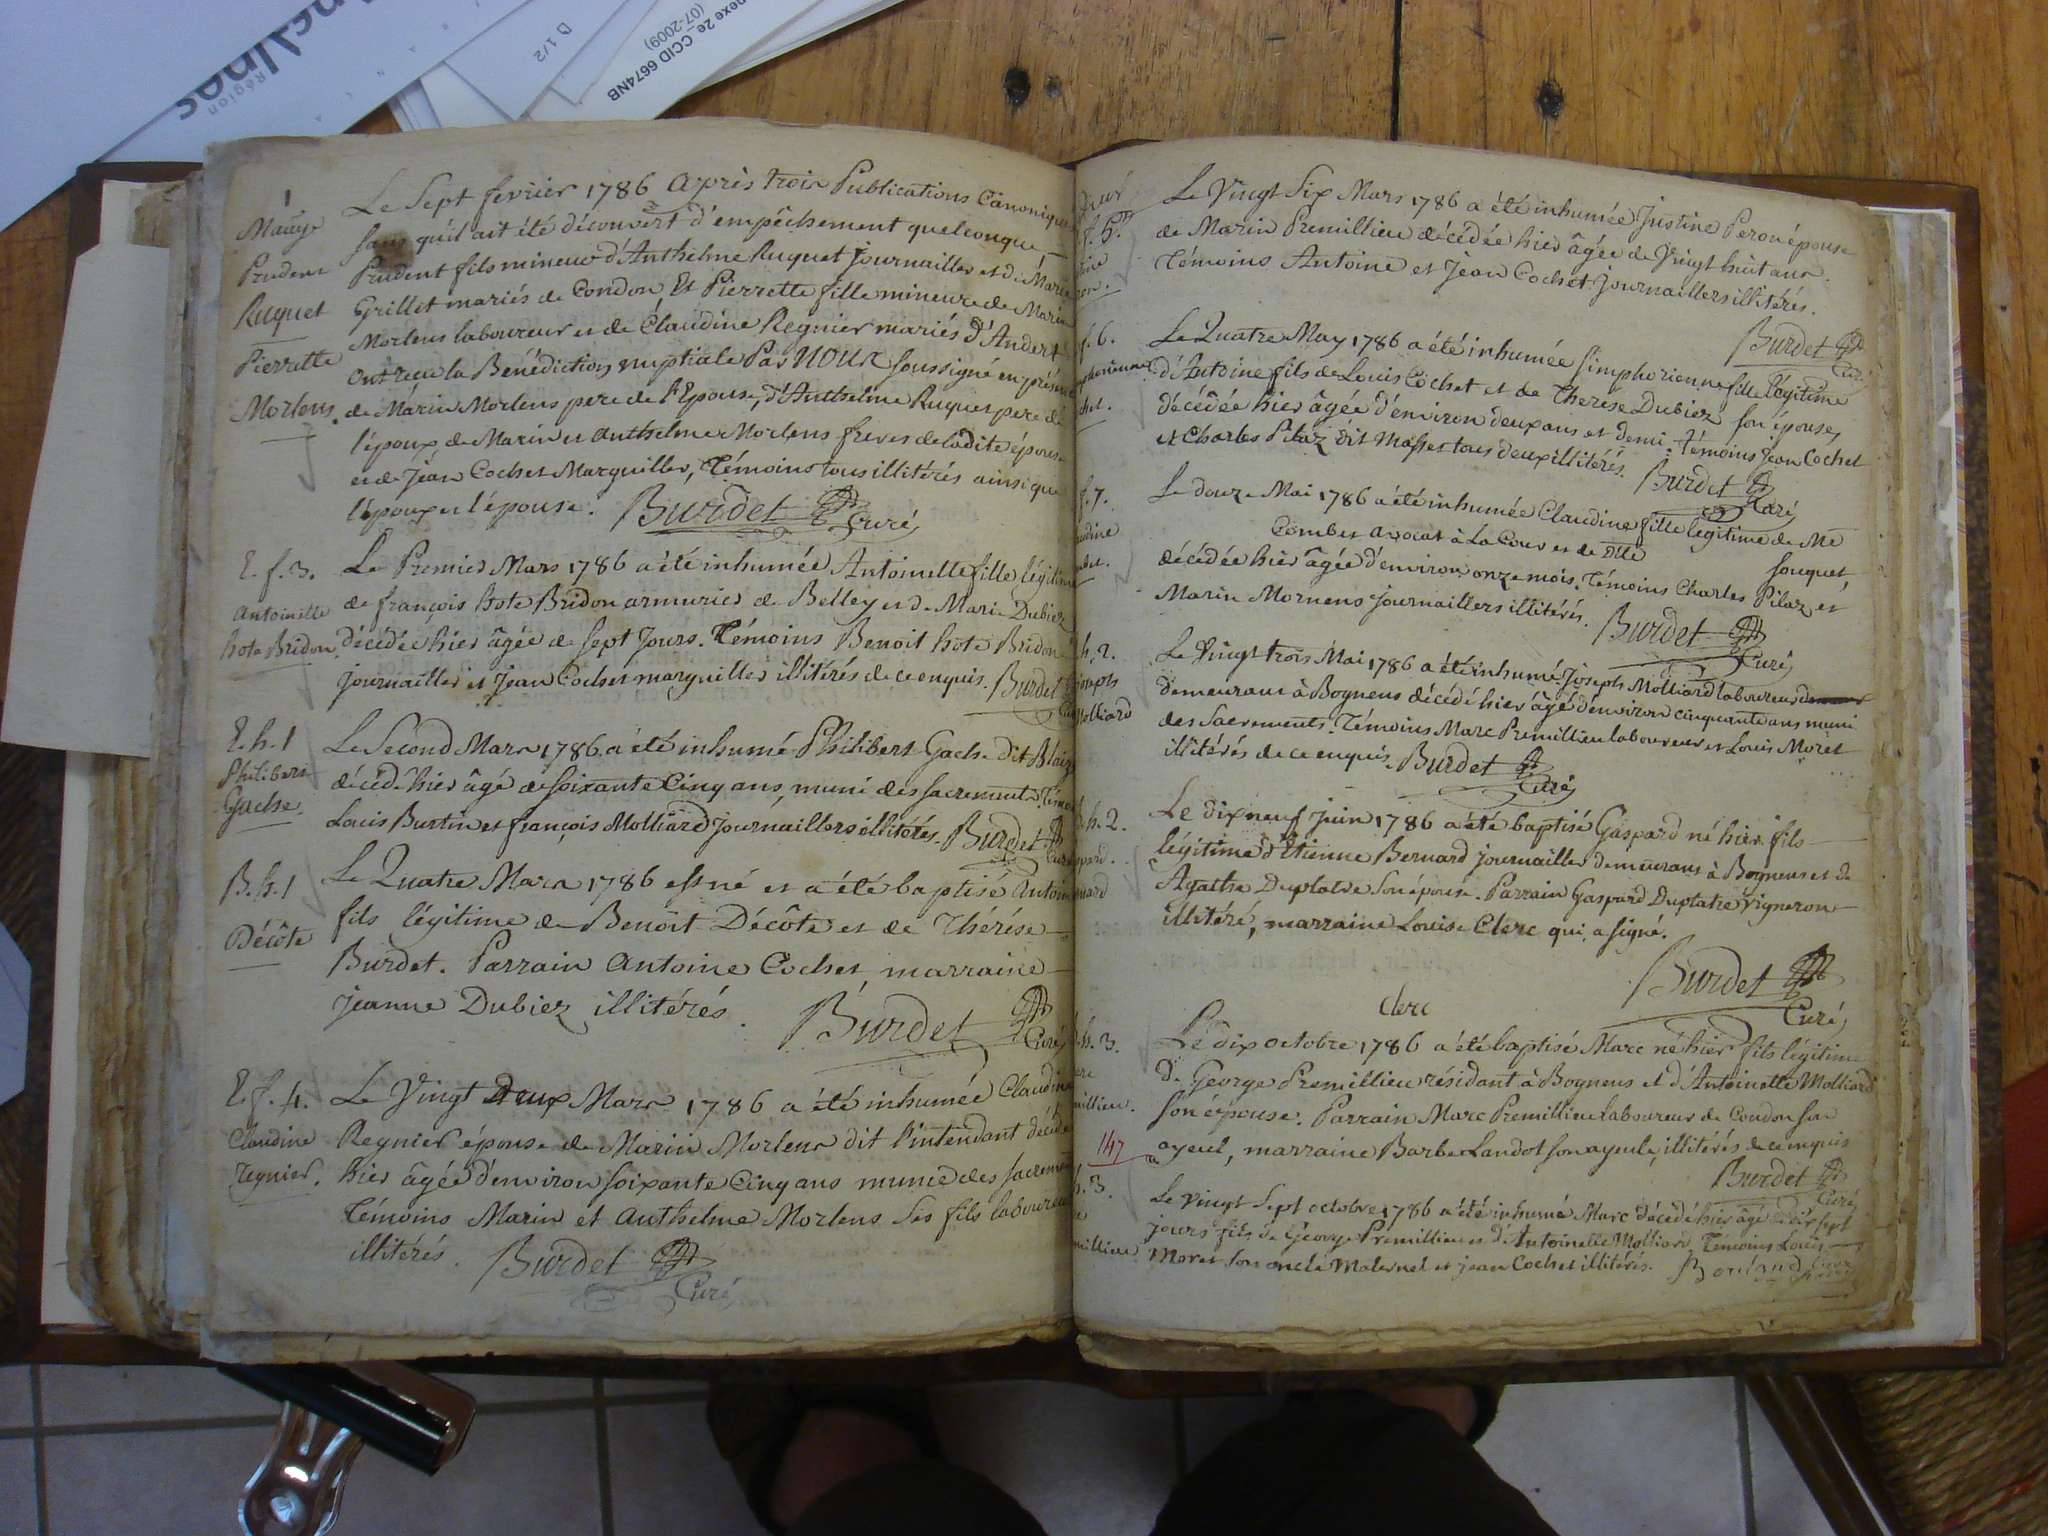 Région
D 1/2
exe 2e_CCID 6674NB
(07-2009)
1
Mariage
Prudent
Ruquet
Pierrette
Mortens.
Le Sept fevrier 1786 Après trois Publications Canoniques
sans qu'il ait été découvert d'empêchement quelconque
Prudent fils mineur d'Anthelme Ruquet Journaillier et de Marie
Grillet mariés de Condon, Et Pierrette fille mineure de Marin
Mortens laboureur et de Claudine Regnier mariés d'Andert
ont reçu la Bénédiction nuptiale Par NOUS soussigné en présence
de Marin Mortens pere de l'Epouse, d'Anthelme Ruquet pere de
l'époux, de Marin et Anthelme Mortens freres de ladite épouse
et de Jean Cochet Marguiller, Témoins tous illitérés ainsi que
l'époux et l'épouse. Burdet Curé
E. f. 3.
Antoinette
hote Bridon.
Le Premier Mars 1786 a été inhumée Antoinette fille légitime
de françois hote Bridon armurier de Belley et de Marie Dubiez
décédée hier âgée de sept Jours. Témoins Benoit hote Bridon
journaillier et Jean Cochet marguiller illitérés de ce enquis. Burdet
E. h. 1
Philibert
Gache.
Le Second Mars 1786 a été inhumé Philibert Gache dit Blaize
décédé hier âgé de soixante Cinq ans, muni des sacrements. Témoins
Louis Burtin et françois Molliard Journailliers illitérés. Burdet Curé
B. h. 1
Décôte
Le Quatre Mars 1786 est né et a été baptisé Antoine
fils légitime de Benoît Décôte et de Thérèse
Burdet. Parrain Antoine Cochet, marraine
Jeanne Dubiez illitérés.
Burdet Curé
E. f. 4.
Claudine
regnier.
Le Vingt Deux Mars 1786 a été inhumée Claudine
Regnier épouse de Marin Mortens dit l'intendant décédée
hier âgée d'environ soixante Cinq ans munie des sacremens
Témoins Marin et Anthelme Mortens ses fils laboureurs
illitérés. Burdet Curé
f. 5.
Le Vingt Six Mars 1786 a été inhumée Justine Peron épouse
de Marin Premillieu décédée hier âgée de Vingt huit ans.
Témoins Antoine et Jean Cochet Journailliers illitérés.
Burdet Curé
f. 6.
Le Quatre May 1786 a été inhumée Simphorienne fille légitime
d'Antoine fils de Louis Cochet et de Therese Dubiez son épouse,
décédée hier âgée d'environ deux ans et demi. Témoins Jean Cochet
et Charles Pilaz dit Masset tous deux illitérés. Burdet Curé
f. 7.
Le douze Mai 1786 a été inhumée Claudine fille légitime de Me
Combet avocat à La Cour et de Dlle souquet,
décédée hier âgée d'environ onze mois. Témoins Charles Pilaz et
Marin Mornens Journailliers illitérés.
Burdet Curé
h. 2.
Joseph
Molliard
Le Vingt trois Mai 1786 a été inhumé Joseph Molliard laboureur
demeurant à Bognens décédé hier âgé d'environ cinquante ans muni
des Sacrements. Témoins Marc Premillieu laboureur et Louis Moret
illitérés de ce enquis. Burdet Curé
h. 2.
Le dix neuf Juin 1786 a été baptisé Gaspard né hier fils
légitime d'Etienne Bernard journaillier demeurant à Bognens et de
Agathe Duplatre son épouse. Parrain Gaspard Duplatre vigneron
illitéré, marraine Louise Clerc qui a signé.
Burdet Curé
Clerc
h. 3.
Le dix octobre 1786 a été baptisé Marc né hier fils légitime
de George Premillieu résidant à Bognens et d'Antoinette Molliard
son épouse. Parrain Marc Premillieu laboureur de Condon son
ayeul, marraine Barbe Landot son ayeule, illitérés de ce enquis
Burdet Curé
147
h. 3.
Le vingt sept octobre 1786 a été inhumé Marc décédé hier âgé de dix sept
jours fils de George Premillieu et d'Antoinette Molliard. Témoins Louis
Moret son oncle Maternel et jean Cochet illitérés.